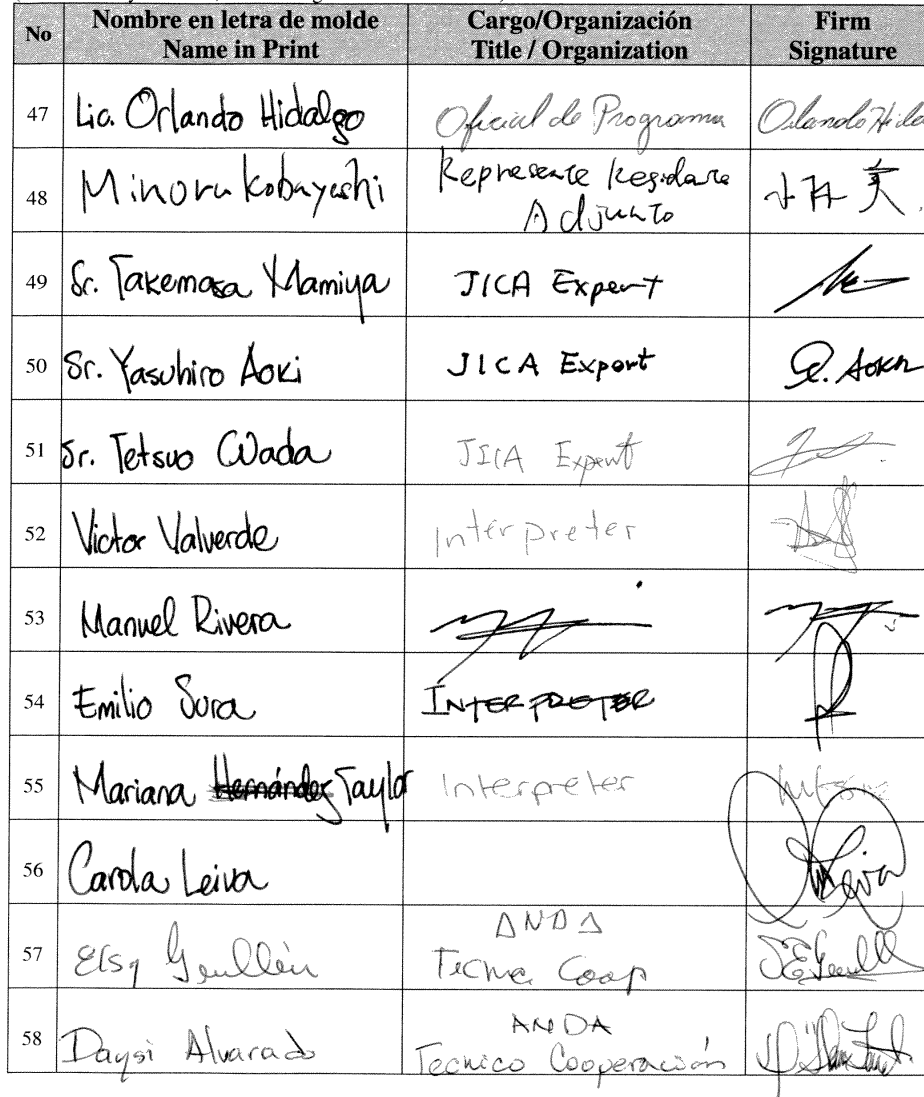 No
Nombre en letra de molde
Name in Print
Cargo/Organización
Title / Organization
Firm
Signature
47 Lic. Orlando Hidalgo Oficial de Programa Orlando Hida
48 Minoru Kobayashi Represente Residare
Adjunto
小林 美
49 Sr. Takemasa Mamiya JICA Expert
50 Sr. Yasuhiro Aoki JICA Expert
51 Sr. Tetsuo Wada JICA Expert
52 Victor Valverde Interpreter
53 Manuel Rivera
54 Emilio Sura INTERPRETER
55 Mariana Hernández Taylor Interpreter
56 Carola Leiva
57 Elsy Guillén
ANDA
Coop
58 Daysi Alvarado
ANDA
Tecnico Cooperación